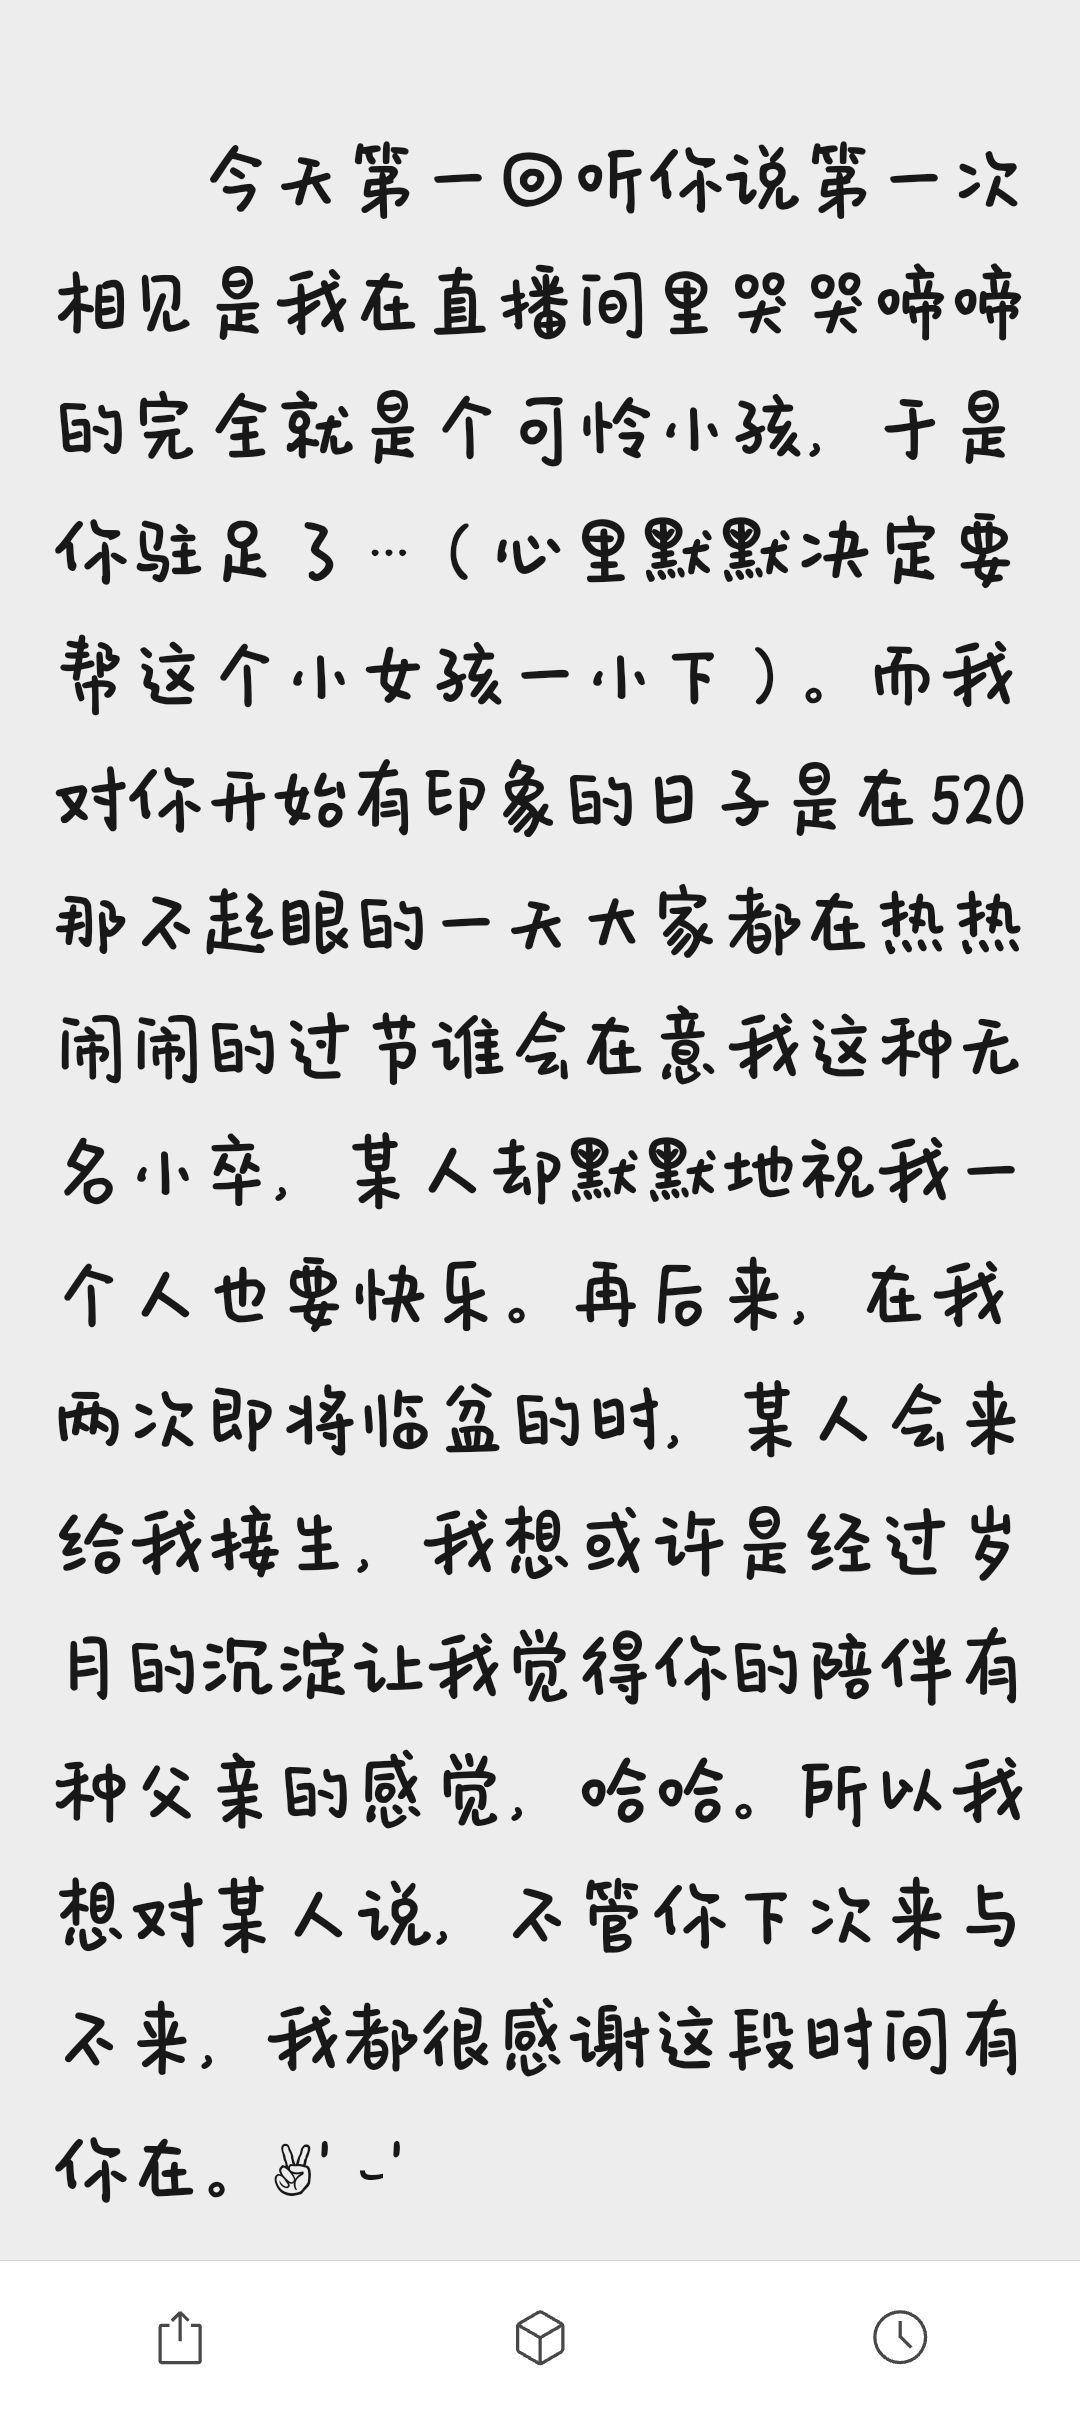 今天第一回听你说第一次
相见是我在直播间里哭哭啼啼
的完全就是个可怜小孩，于是
你驻足了…（心里默默决定要
帮这个小女孩一小下）。而我
对你开始有印象的日子是在520
那不起眼的一天大家都在热热
闹闹的过节谁会在意我这种无
名小卒，某人却默默地祝我一
个人也要快乐。再后来，在我
两次即将临盆的时，某人会来
给我接生，我想或许是经过岁
月的沉淀让我觉得你的陪伴有
种父亲的感觉，哈哈。所以我
想对某人说，不管你下次来与
不来，我都很感谢这段时间有
你在。✌' ⌣'